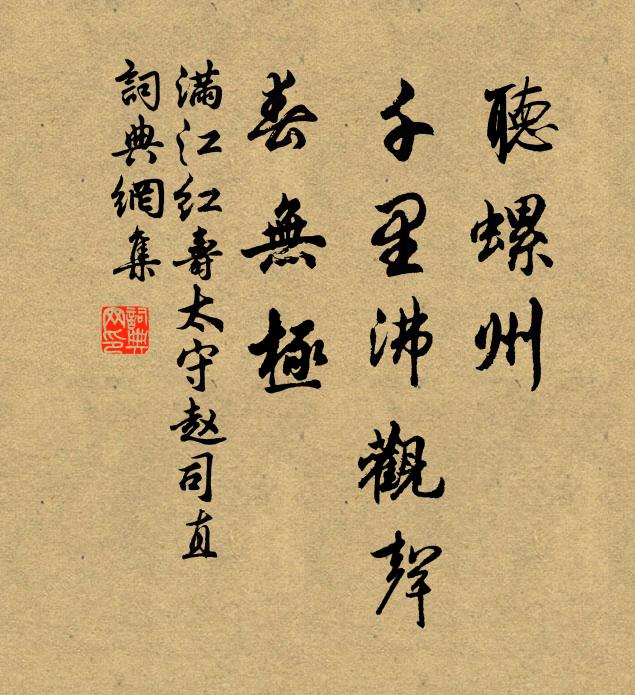 聽螺州
千里沸觀聲
春無極
滿江紅壽太守赵司直
詞典網集
詞典
网印